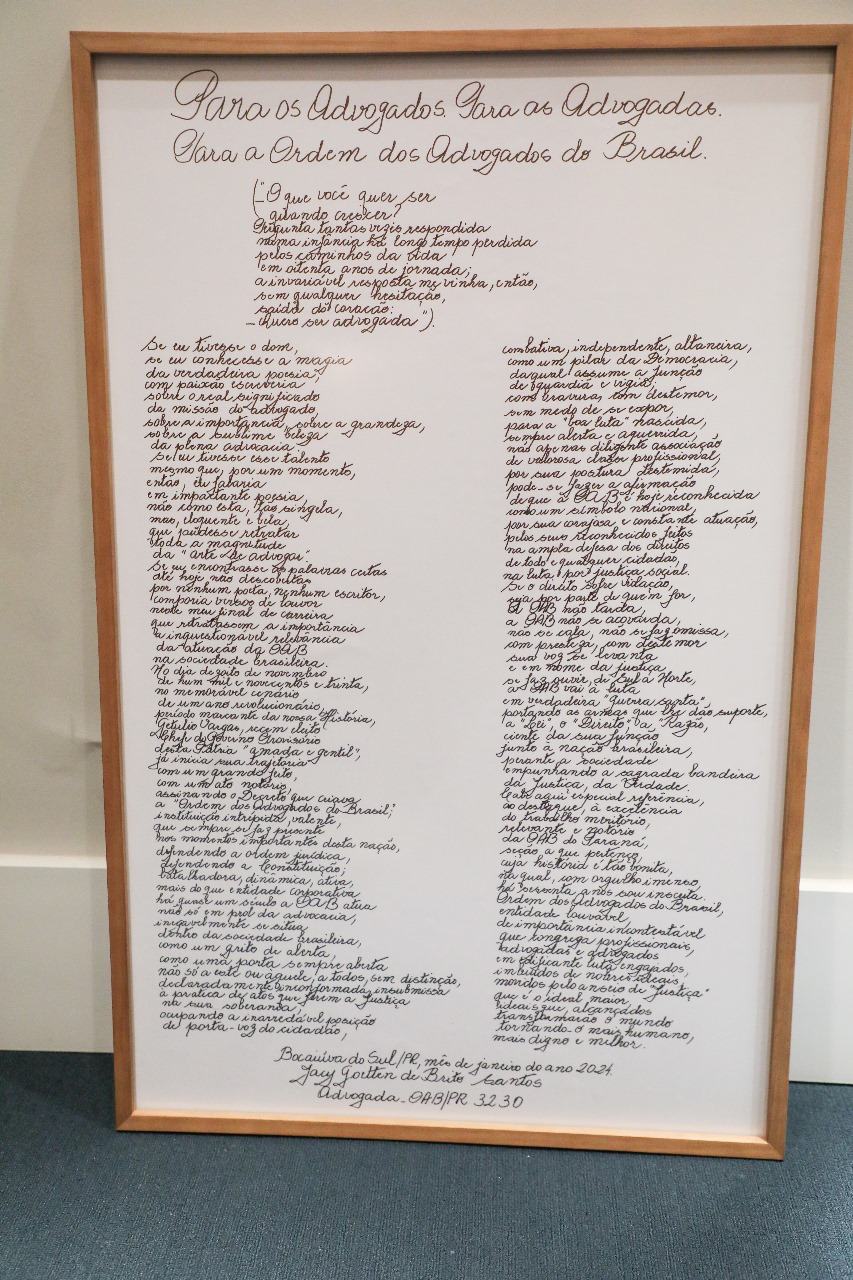 Para os Advogados. Para as Advogadas.
Para a Ordem dos Advogados do Brasil.
("O que você quer ser
quando crescer?
Pergunta tantas vezes respondida
numa infância há longo tempo perdida
pelos caminhos da vida
em oitenta anos de jornada;
a invariável resposta me vinha, então,
sem qualquer hesitação,
saída do coração:
- Quero ser advogada").
Se eu tivesse o dom,
se eu conhecesse a magia
da verdadeira poesia,
com paixão escreveria
sobre o real significado
da missão do advogado,
sobre a importância, sobre a grandeza,
sobre a sublime beleza
da plena advocacia.
Se eu tivesse esse talento
mesmo que, por um momento,
então, eu falaria
em impactante poesia,
não como esta, tão singela,
mas, eloquente e bela,
que pudesse retratar
toda a magnitude
da "arte de advogar"
Se eu encontrasse as palavras certas
até hoje não descobertas
por nenhum poeta, nenhum escritor,
comporia versos de louvor
neste meu final de carreira
que retratassem a importância
a inquestionável relevância
da atuação da OAB
na sociedade brasileira.
No dia dezoito de novembro
de hum mil e novecentos e trinta,
no memorável cenário
de um ano revolucionário,
período marcante da nossa História,
Getulio Vargas, recém eleito
Chefe do Governo Provisório
desta Pátria "amada e gentil",
já inicia sua trajetória
com um grande feito,
com um ato notório,
assinando o Decreto que criava
a "Ordem dos Advogados do Brasil;"
instituição intrépida, valente,
que sempre se faz presente
nos momentos importantes desta nação,
defendendo a ordem jurídica,
defendendo a Constituição;
batalhadora, dinâmica, ativa,
mais do que entidade corporativa
há quase um século a OAB atua
não só em prol da advocacia,
inegavelmente se situa
dentro da sociedade brasileira,
como um grito de alerta,
como uma porta sempre aberta
não só a este ou àquele, a todos, sem distinção,
declaradamente inconformada, insubmissa
à prática de atos que ferem a Justiça
na sua soberania,
ocupando a inarredável posição
de porta-voz do cidadão,
combativa, independente, altaneira,
como um pilar da Democracia,
da qual assume a função
de aguardiã e vigia;
com bravura, com destemor,
sem medo de se expor,
para a "boa luta" nascida,
sempre alerta e aguerrida,
não apenas diligente associação
de valorosa classe profissional,
por sua postura destemida,
pode-se fazer a afirmação
de que a OAB é hoje reconhecida
como um símbolo nacional,
por sua corajosa e constante atuação,
pelos seus reconhecidos feitos
na ampla defesa dos direitos
de todo e qualquer cidadão,
na luta por justiça social.
Se o direito sofre violação,
seja por parte de quem for,
a OAB não tarda,
a OAB não se acovarda,
não se cala, não se faz omissa,
com presteza, com destemor
sua voz se levanta
e em nome da justiça,
se faz ouvir de Sul a Norte,
a OAB vai à luta
em verdadeira "guerra santa"
portando as armas que lhe dão suporte,
a "Lei", o "Direito", a "Razão,
ciente da sua função
junto à nação brasileira,
perante a sociedade
empunhando a sagrada bandeira
da Justiça, da Verdade.
Cabe aqui especial referência,
ao destaque, à excelência
do trabalho meritório,
relevante e notório
da OAB do Paraná,
seção a que pertenço,
cuja história é tão bonita,
na qual, com orgulho imenso,
há sessenta anos sou inscrita.
Ordem dos Advogados do Brasil,
entidade louvável,
de importância incontestável
que congrega profissionais,
advogadas e advogados
em edificante luta engajados,
imbuídos de nobres ideais,
movidos pelo anseio de "Justiça"
que é o ideal maior,
ideais que, alcançados
transformarão o mundo
tornando-o mais humano,
mais digno e melhor.
Bocaiúva do Sul/PR, mês de janeiro do ano 2024.
Jacy Goetten de Brito Santos
Advogada - OAB/PR 3230